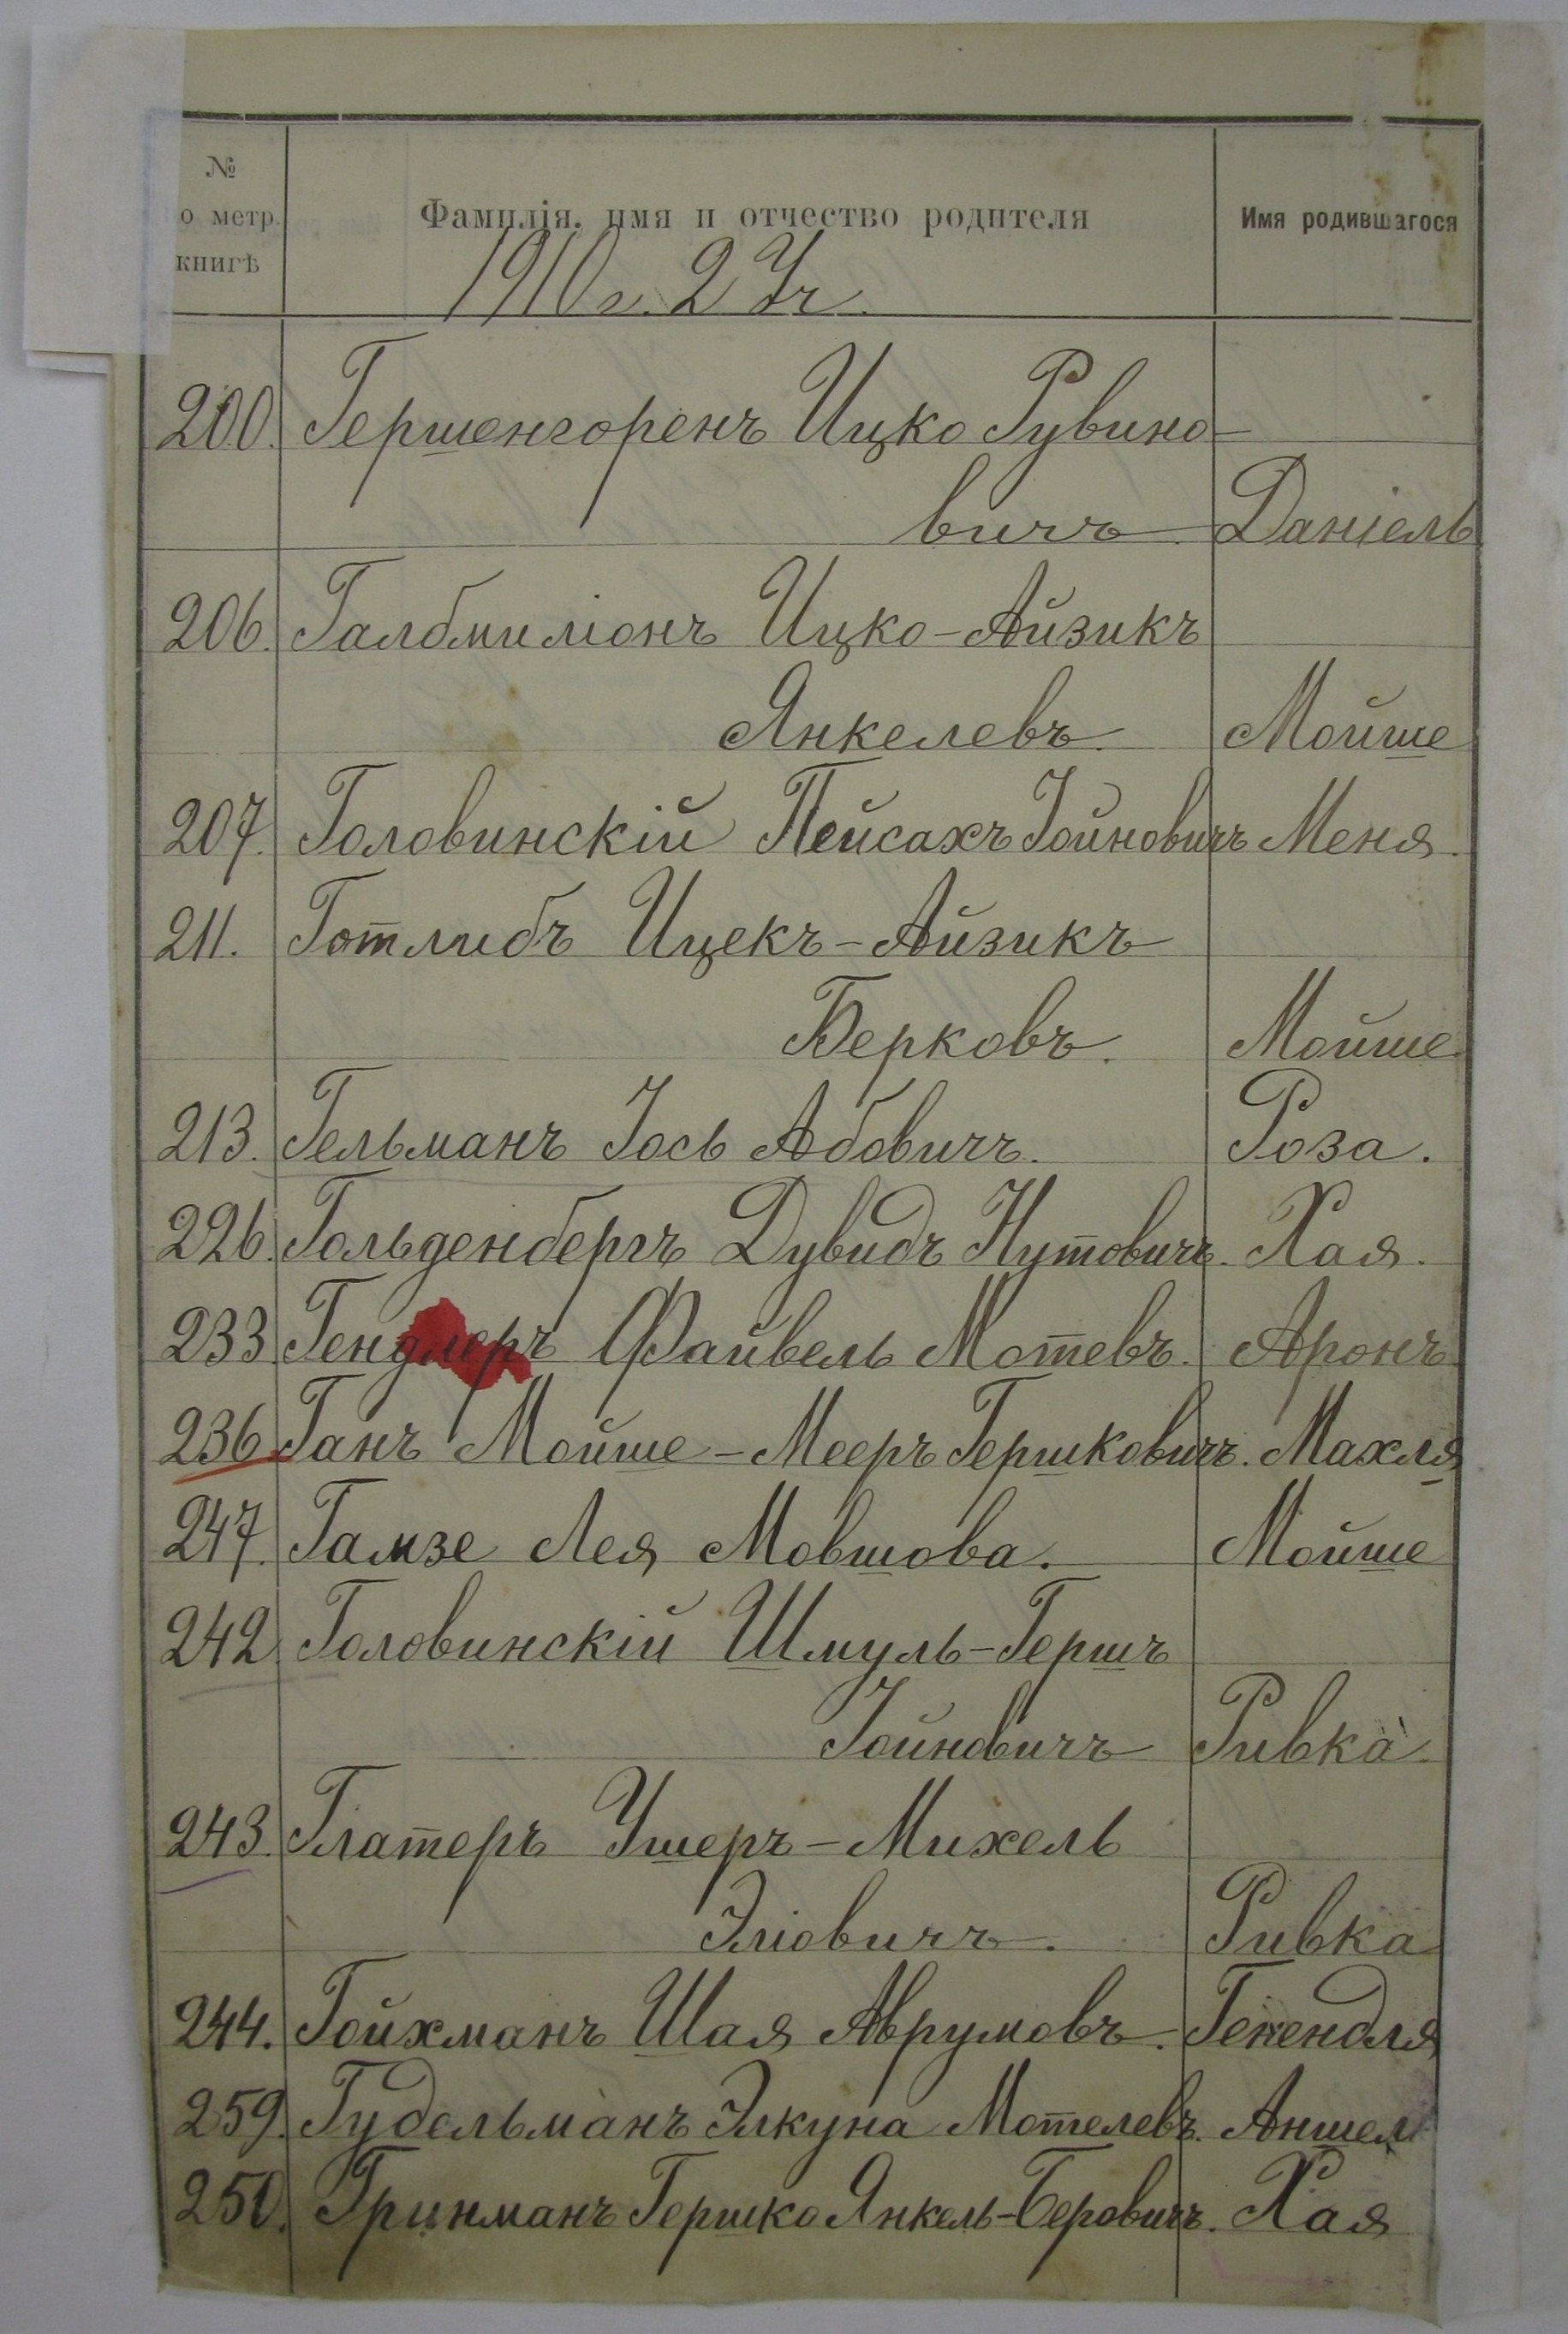 №
о метр.
книгѣ
Фамилія, имя и отчество родителя
Имя родившагося
1910 г. 2 Уч.
200. Гершенгоренъ Ицко Рувино-
вичъ. Даніель
206. Галбмиліонъ Ицко-Айзикъ
Янкелевъ. Мойше
207. Головинскій Пейсахъ Іойновичъ Меня.
211. Готлибъ Ицекъ-Айзикъ
Берковъ. Мойше
213. Гельманъ Іось Абовичъ. Роза.
226. Гольденбергъ Дувидъ Нутовичъ. Хая.
233. Гендлеръ Файвель Мотевъ. Аронъ
236. Ганъ Мойше-Мееръ Гершковичъ. Махля
247. Гамзе Лея Мовшова. Мойше
242. Головинскій Шмуль-Гершъ
Іойновичъ Ривка
243. Глатеръ Ушеръ-Михель
Эліовичъ. Ривка
244. Гойхманъ Шая Аврумовъ. Генендля
259. Гудельманъ Элкуна Мотелевъ. Аншел
250. Гринманъ Гершко Янкель-Беровичъ. Хая